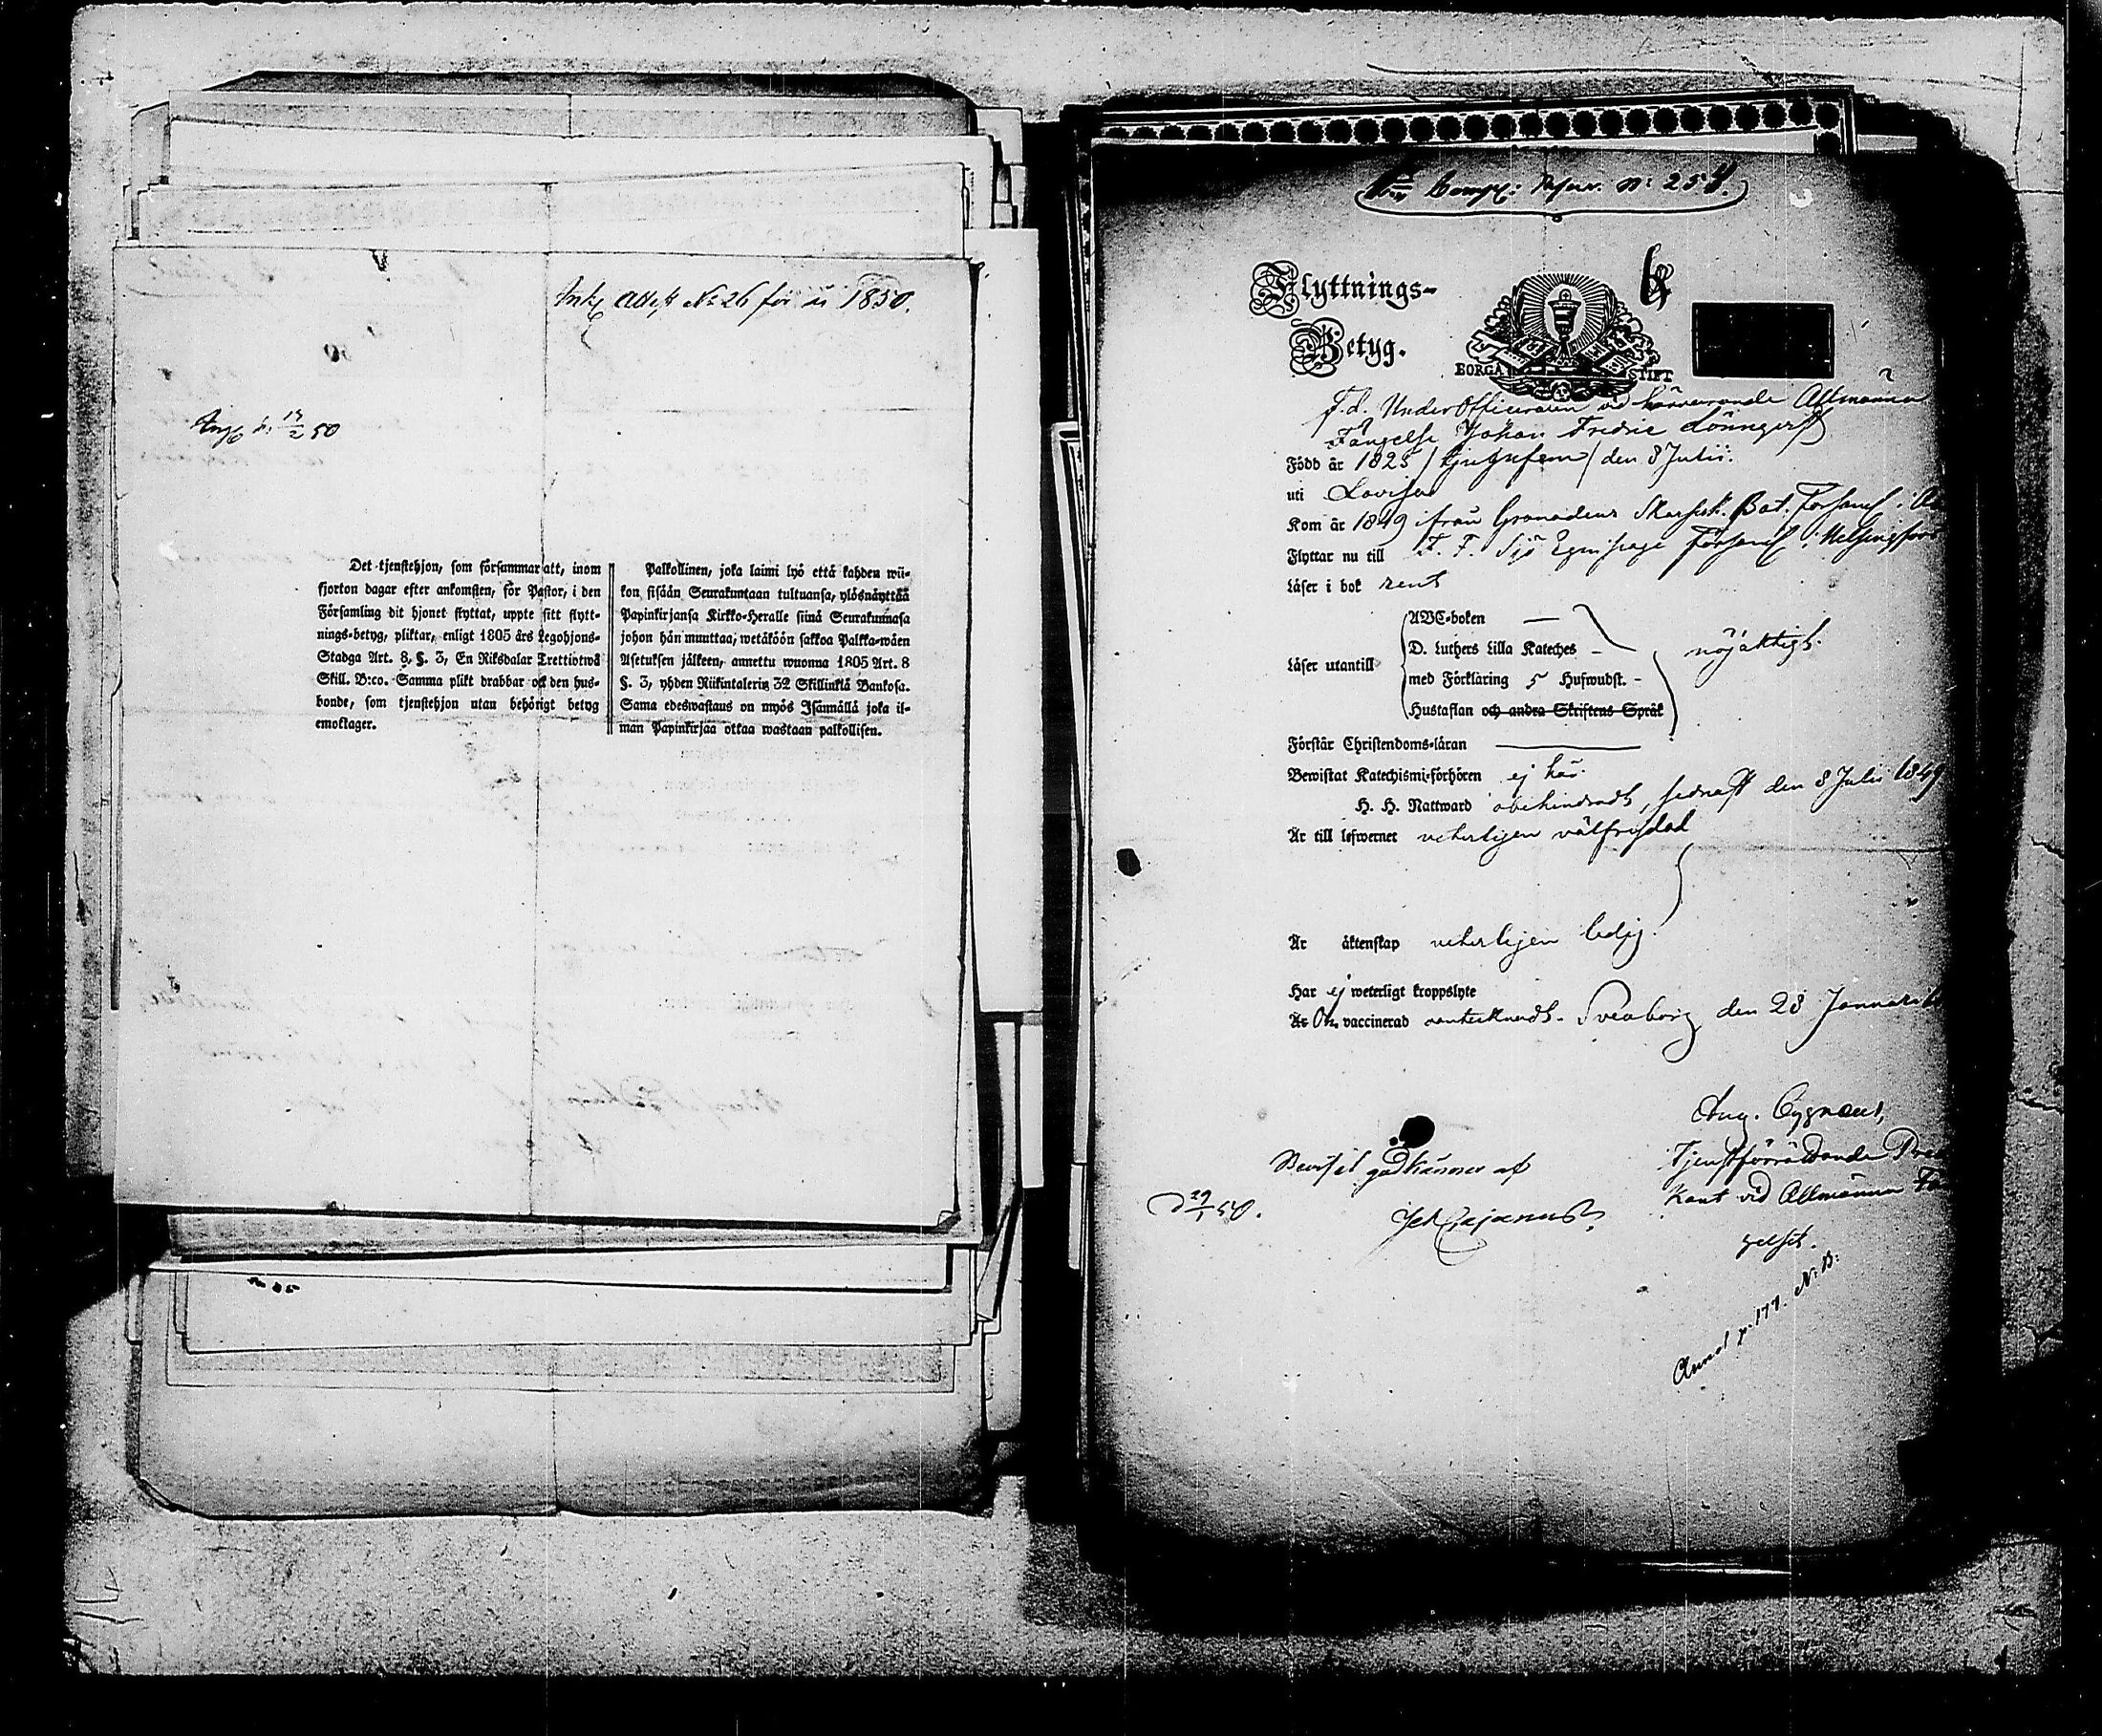 Ink. Attest No 26 för år 1850.
Det tjenstehjon, som försummar att, inom
fjorton dagar efter ankomsten, för Pastor, i den
Församling dit hjonet flyttat, uppte sitt flytt-
nings-betyg, pliktar, enligt 1805 års Legohjons-
Stadga Art. 8, §. 3, En Riksdalar Trettiotwå
Skill. B:co. Samma plikt drabbar ock den hus-
bonde, som tjenstehjon utan behörigt betyg
emottager.
Palkollinen, joka laimi lyö että kahden wii-
kon sisään Seurakuntaan tultuansa, ylösnäyttää
Papinkirjansa Kirkko-Heralle siinä Seurakunnasa
johon hän muuttaa, wetäköön sakkoa Palkka-wäen
Asetuksen jälkeen, annettu wuonna 1805 Art. 8
§. 3, yhden Riikintalerin 32 Skillinkiä Bankosa.
Sama edeswastaus on myös Isännällä joka il-
man Papinkirjaa ottaa wastaan palkollisen.
No: 254.
Flyttnings-
Betyg.
BORGÅ STIFT
F.d. UnderOfficeraren vid härvarande Allmänna
Fängelse Johan Fredric Lönnqvist
Född år 1825 /tjugufem/ den 8 Julii.
uti Lovisa
Kom år 1849 ifrån Grenadeur Skarpsk. Bat. Församl. i
Flyttar nu till F. F. Sjö Equipage Församl. i Helsingfors
Läser i bok rent
ABC-boken —
D. Luthers Lilla Kateches –
Läser utantill
med Förklaring 5 Hufwudst. –
Hustaflan och andra Skriftens Språk
nöjaktigt.
Förstår Christendoms-läran
Bewistat Katechismi-förhören ej här.
H. H. Nattward obehindradt, sednast den 8 Julii 1849
Är till lefwernet veterligen välfrejdad
Är äktenskap veterligen ledig.
Har ej weterligt kroppslyte
Är Om vaccinerad oantecknadt. Sveaborg den 28 Januarii
Aug. Cygnæus,
Tjenstförrättande
kant vid Allmänna
gelset.
Beviset godkännes af
d 29/1 50.
Annot. p. 177. N: B: